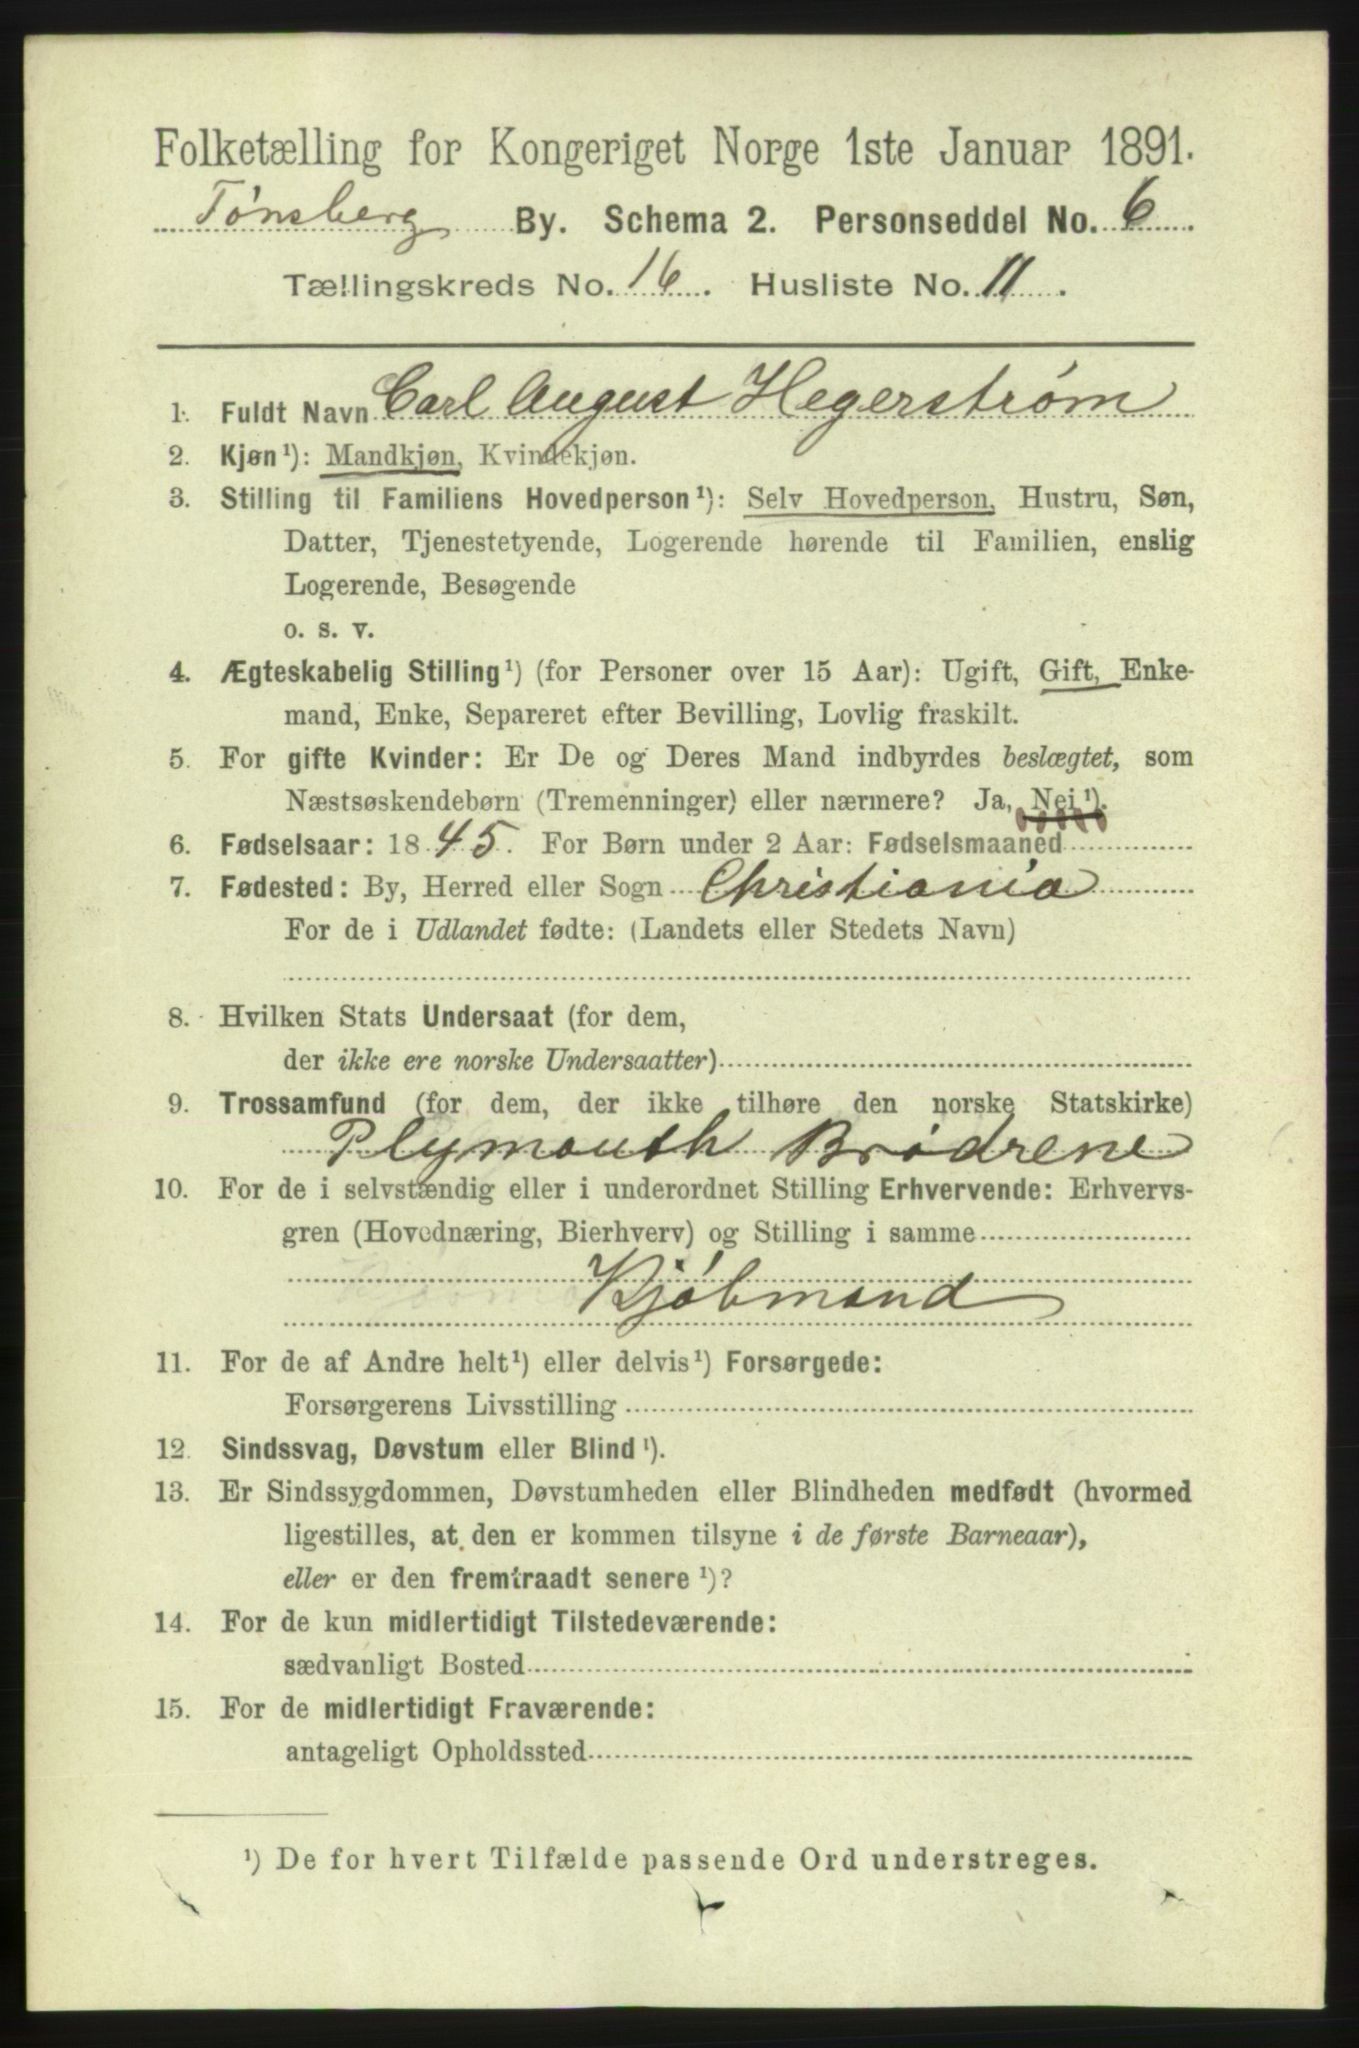 Folketælling for Kongeriget Norge 1ste Januar 1891.
Tønsberg By. Schema 2. Personseddel No. 6
Tællingskreds No. 16. Husliste No. 11.
1. Fuldt Navn Carl August Hegerstrøm
2. Kjøn¹): Mandkjøn, Kvindekjøn.
3. Stilling til Familiens Hovedperson¹): Selv Hovedperson, Hustru, Søn,
Datter, Tjenestetyende, Logerende hørende til Familien, enslig
Logerende, Besøgende
o. s. v.
4. Ægteskabelig Stilling¹) (for Personer over 15 Aar): Ugift, Gift, Enke-
mand, Enke, Separeret efter Bevilling, Lovlig fraskilt.
5. For gifte Kvinder: Er De og Deres Mand indbyrdes beslægtet, som
Næstsøskendebørn (Tremenninger) eller nærmere? Ja, Nei¹).
6. Fødselsaar: 1845. For Børn under 2 Aar: Fødselsmaaned
7. Fødested: By, Herred eller Sogn Christiania
For de i Udlandet fødte: (Landets eller Stedets Navn)
8. Hvilken Stats Undersaat (for dem,
der ikke ere norske Undersaatter)
9. Trossamfund (for dem, der ikke tilhøre den norske Statskirke)
Plymouth Brødrene
10. For de i selvstændig eller i underordnet Stilling Erhvervende: Erhvervs-
gren (Hovednæring, Bierhverv) og Stilling i samme
Kjøbmand
11. For de af Andre helt¹) eller delvis¹) Forsørgede:
Forsørgerens Livsstilling
12. Sindssvag, Døvstum eller Blind¹).
13. Er Sindssygdommen, Døvstumheden eller Blindheden medfødt (hvormed
ligestilles, at den er kommen tilsyne i de første Barneaar),
eller er den fremtraadt senere¹)?
14. For de kun midlertidigt Tilstedeværende:
sædvanligt Bosted
15. For de midlertidigt Fraværende:
antageligt Opholdssted
¹) De for hvert Tilfælde passende Ord understreges.